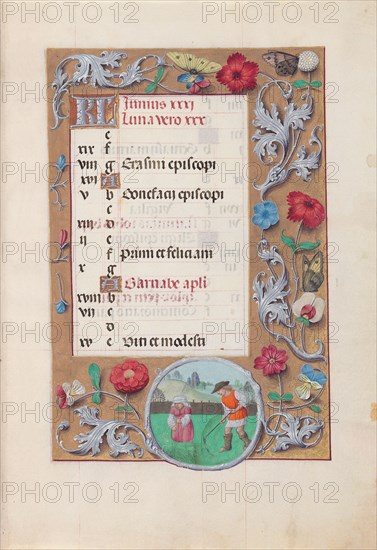 KL Junius xxxi
Luna vero xxx
e
xix f
viii g Erasmi episcopi
xvi A
v b Bonefacii episcopi
c
xiii d
ii e
f Primi et feliciani
x g
A Barnabe apli
xviii b
vii c
d
xv e Viti et modesti
PHOTO 12